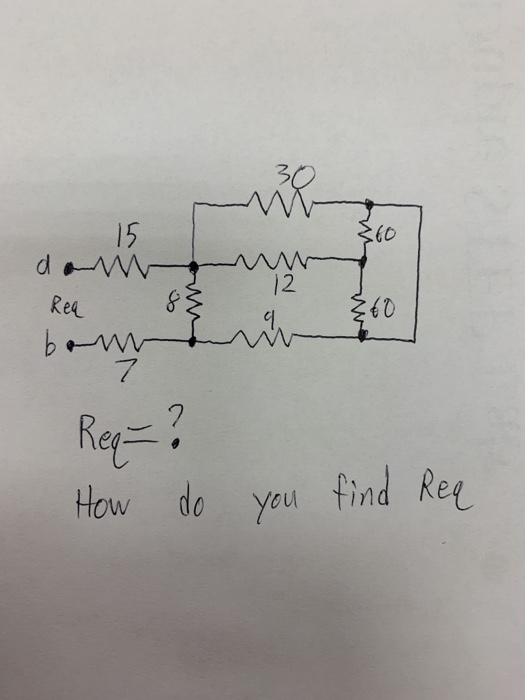 30
15
60
d
12
Req
8
60
9
b
7
Req=?
How do you find Req